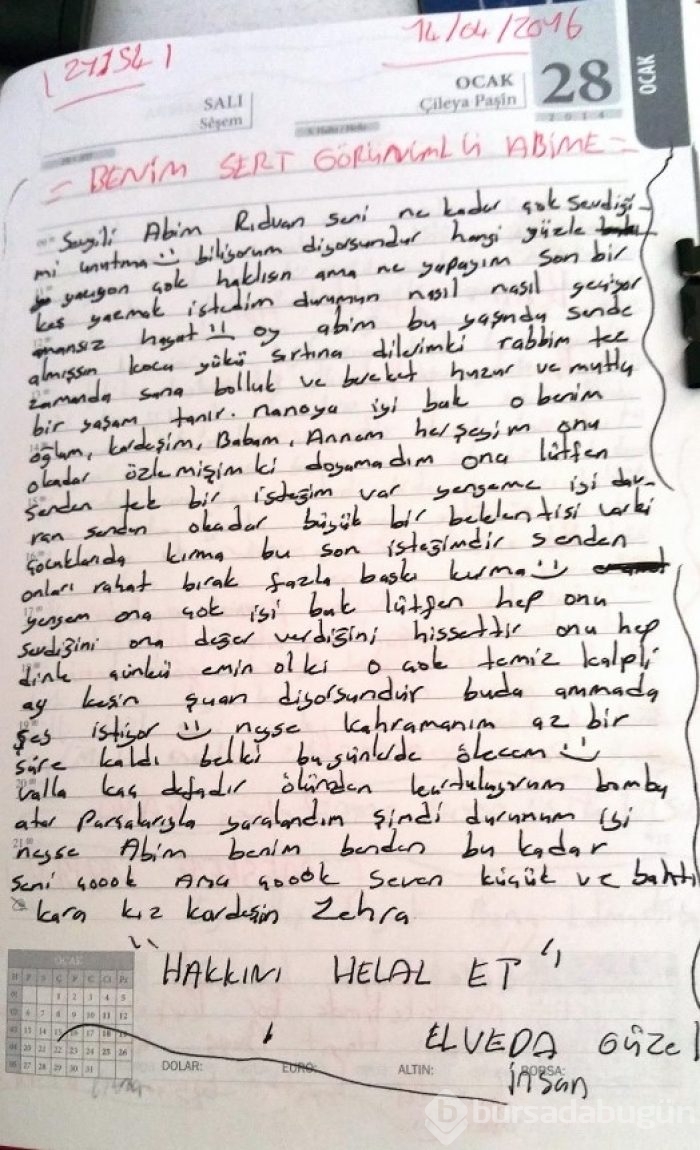 (2YISL)
14/04/2016
SALI
Sêşem
OCAK
Çileya Paşîn
28
2014
OCAK
= BENİM SERT GÖRÜNÜMLÜ ABİME =
Sevgili Abim Rıdvan seni ne kadar çok sevdiği-
mi unutma biliyorum diyorsundur hangi yüzle
yazıyon çok haklısın ama ne yapayım son bir
kes yazmak istedim durumun nasıl nasıl geçiyor
amansız hayat oy abim bu yaşında sende
almışsın koca yükü sırtına dilerimki rabbim tez
zamanda sana bolluk ve bereket huzur ve mutlu
bir yaşam tanır. Nanoya iyi bak o benim
oğlum, kardeşim, Babam, Annem herşeyim onu
okadar özlemişimki doyamadım ona lütfen
senden tek bir isteğim var yengeme iyi dav-
ran senden okadar büyük bir beklentisi varki
çocuklarıda kırma bu son isteğimdir senden
onları rahat bırak fazla baskı kurma
yengem ona çok iyi bak lütfen hep onu
sevdiğini ona değer verdiğini hissettir onu hep
dinle çünkü emin olki o çok temiz kalpli
ay kesin şuan diyorsundur buda ammada
şey istiyor neyse kahramanım az bir
süre kaldı belki bugünlerde ölecem
valla kaç defadır ölümden kurtuluyorum bomba
atar parçalarıyla yaralandım şindi durumum iyi
neyse Abim benim benden bu kadar
seni çoook Ama çoook seven küçük ve bahtı
kara kız kardeşin Zehra
"HAKKINI HELAL ET"
ELVEDA GÜZEL
İnsan
OCAK
DOLAR: EURO: ALTIN: BORSA:
bursadabugün